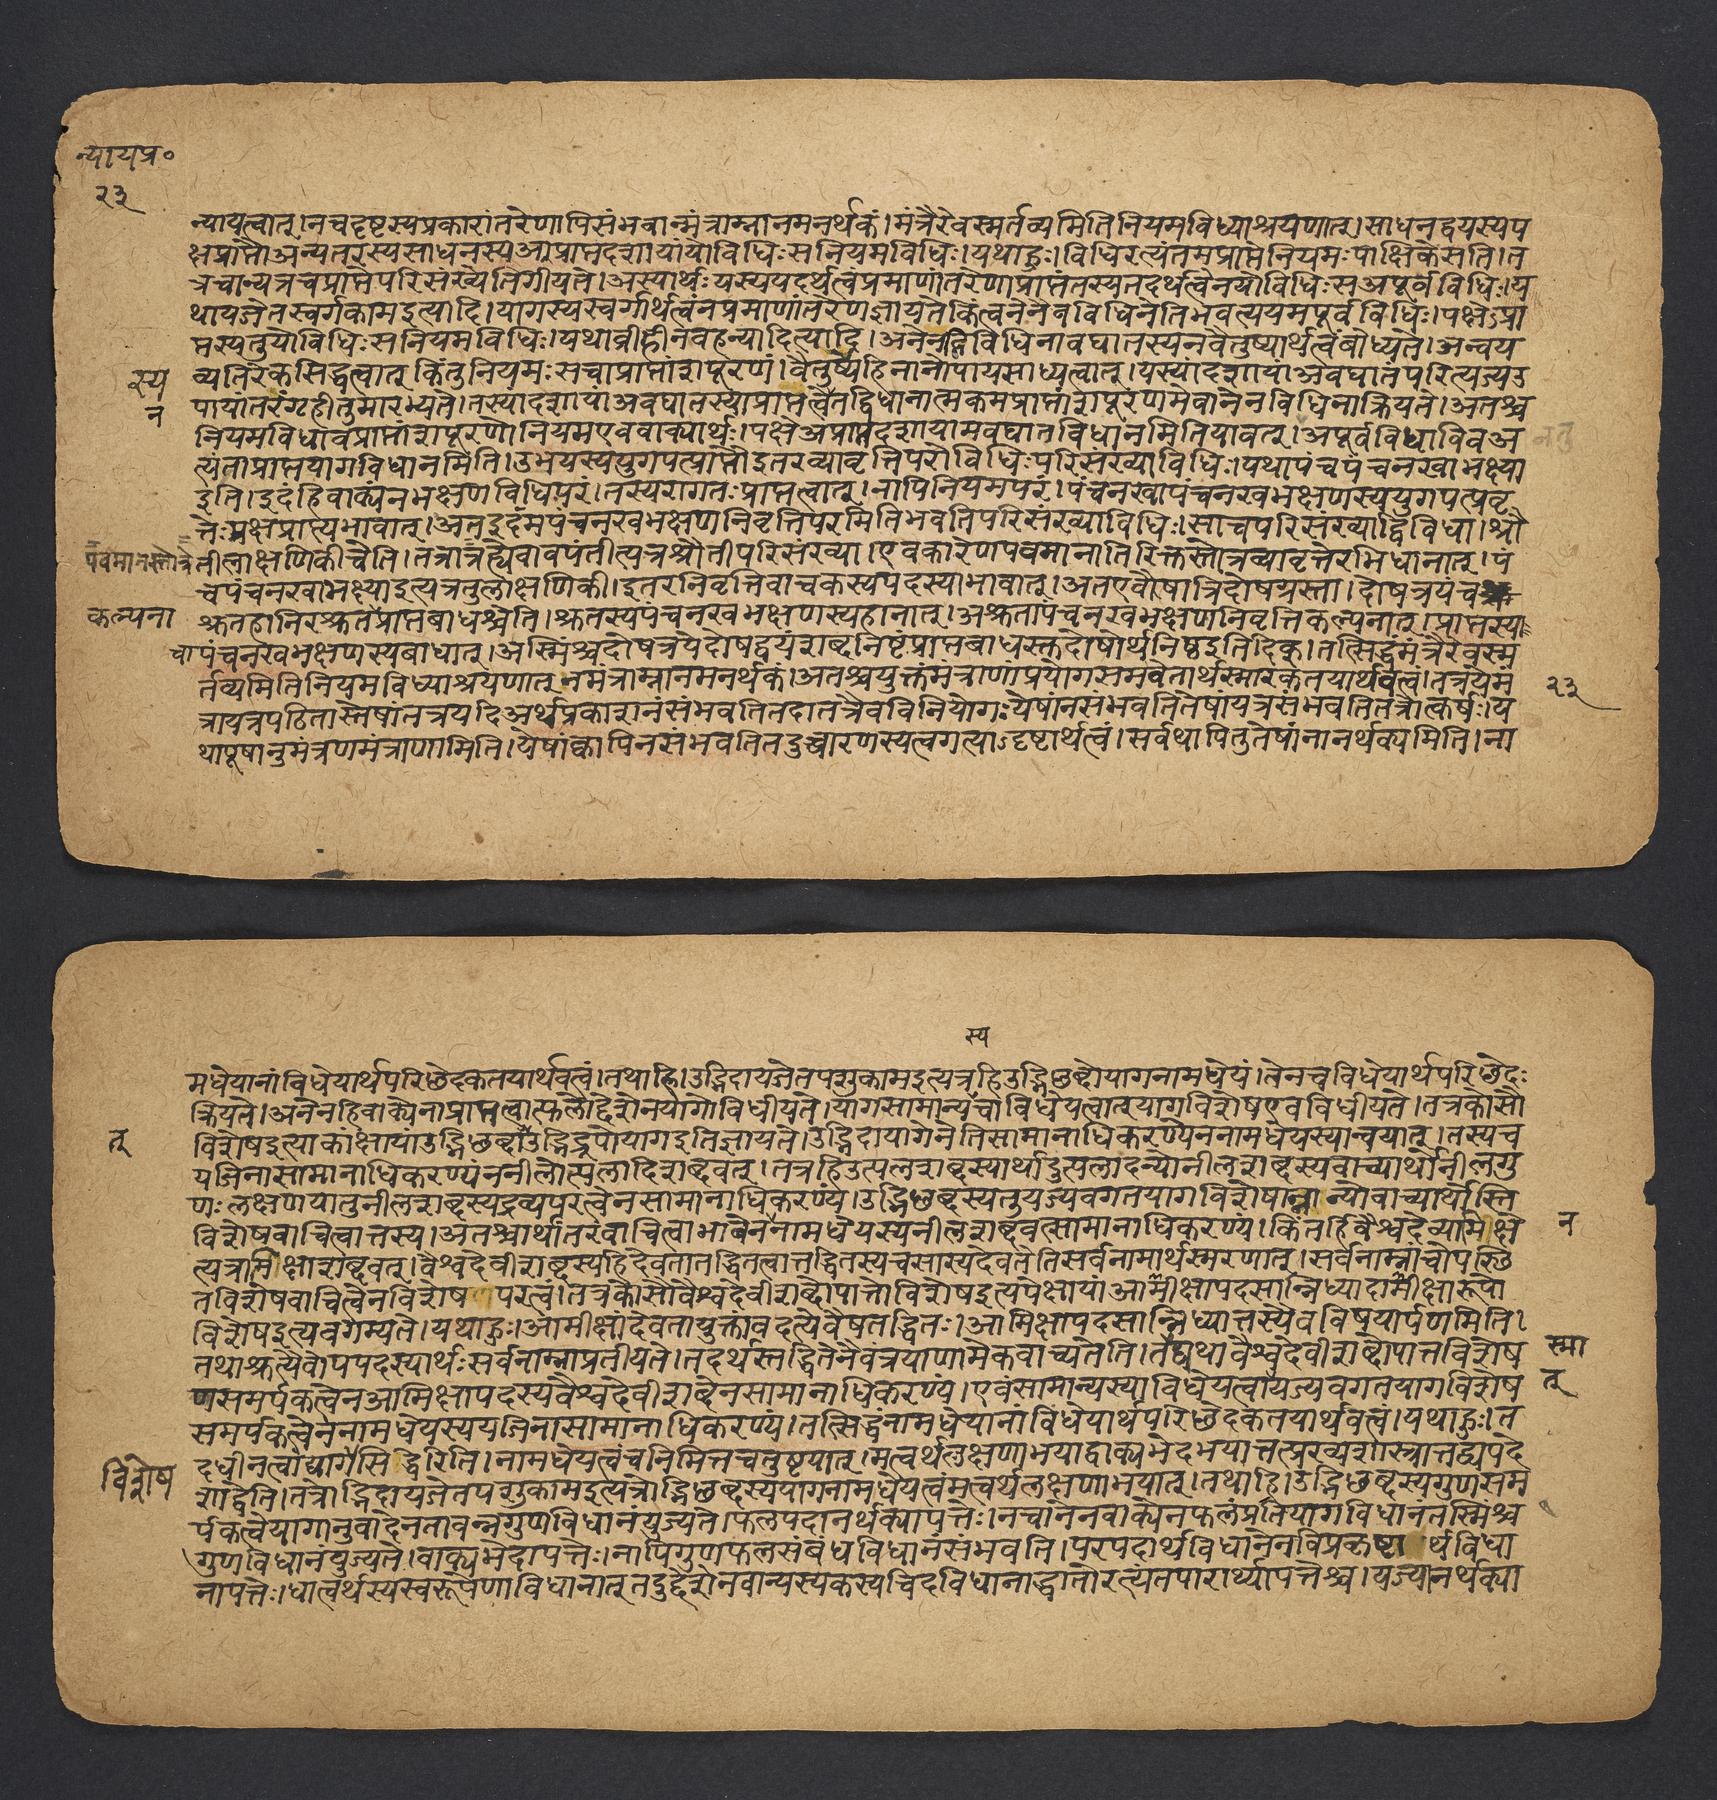 न्यायप्र०
२३
न्याय्यत्वात्।नचदृष्टस्यप्रकारांतरेणापिसंभवान्मंत्राम्नानमनर्थकं।मंत्रैरेवस्मर्तव्यमितिनियमविध्याश्रयणात्।साधनद्वयस्यप
क्षप्राप्तौअन्यतरस्यसाधनस्यअप्राप्तदशायांयोविधिःसनियमविधिः।यथाहुः।विधिरत्यंतमप्राप्तेनियमःपाक्षिकेसति।त
त्रचान्यत्रचप्राप्तेपरिसंख्येतिगीयते।अस्यार्थःयस्ययदर्थत्वंप्रमाणांतरेणाप्राप्तंतस्यतदर्थत्वेनयोविधिःसअपूर्वविधिः।य
थायजेतस्वर्गकामइत्यादि।यागस्यस्वर्गार्थत्वंनप्रमाणांतरेणज्ञायतेकिंत्वनेनैवविधिनेतिभवत्ययमपूर्वविधिः।पक्षेऽप्रा
प्तस्यतुयोविधिःसनियमविधिः।यथाव्रीहीनवहन्यादित्यादि।अनेनविधिनावघातस्यनवैतुष्यार्थत्वंबोध्यते।अन्वय
व्यतिरेकसिद्धत्वात्किंतुनियमःसचाप्राप्तांशपूरणं।वैतुष्येहिनानोपायसाध्यत्वात्।यस्यांदशायांअवघातंपरित्यज्यउ
स्य
न
पायांतरंगृहीतुमारभ्यते।तस्यांदशायांअवघातस्याप्राप्तत्वेतद्विधानात्मकमप्राप्तांशपूरणमेवानेनविधिनाक्रियते।अतश्च
नियमविधावप्राप्तांशपूरणोनियमएववाक्यार्थः।पक्षेअप्राप्तदशायामवघातविधानमितियावत्।अपूर्वविधाविवअ
त्यंताप्राप्तयागविधानमिति।उभयस्ययुगपत्प्राप्तौइतरव्यावृत्तिपरोविधिःपरिसंख्याविधिः।यथापंचपंचनखाभक्ष्या
इति।इदंहिवाक्यंनभक्षणविधिपरं।तस्यरागतःप्राप्तत्वात्।नापिनियमपरं।पंचनखापंचनखभक्षणस्ययुगपत्प्रवृ
त्तेःपक्षप्राप्त्यभावात्।अतइदंमपंचनखभक्षणनिवृत्तिपरमितिभवतिपरिसंख्याविधिः।साचपरिसंख्याद्विविधा।श्रौ
पवमानस्तोत्रे
तीलाक्षणिकीचेति।तत्रात्रह्येवावपंतीत्यत्रश्रौतीपरिसंख्या।एवकारेणपवमानातिरिक्तस्तोत्रव्यावृत्तेरभिधानात्।पं
चपंचनखाभक्ष्याइत्यत्रतुलाक्षणिकी।इतरनिवृत्तिवाचकस्यपदस्याभावात्।अतएवैषात्रिदोषग्रस्ता।दोषत्रयंच
कल्पना
श्रुतहानिरश्रुतप्राप्तबाधश्चेति।श्रुतस्यपंचनखभक्षणस्यहानात्।अश्रुतापंचनखभक्षणनिवृत्तिकल्पनात्।प्राप्तस्या
चापंचनखभक्षणस्यबाधात्।अस्मिंश्चदोषत्रयेदोषद्वयंशब्दनिष्टंप्राप्तबाधस्तुदोषोर्थनिष्ठइतिदिक्।तत्सिद्धंमंत्रैरेवस्म
र्तव्यमितिनियमविध्याश्रयणात्नमंत्राम्नानमनर्थकं।अतश्चयुक्तंमंत्राणांप्रयोगसमवेतार्थस्मारकतयार्थवत्वं।तत्रयेमं
२३
त्रायत्रपठितास्तेषांतत्रयदिअर्थप्रकाशनंसंभवतितदातत्रैवविनियोगःयेषांनसंभवतितेषांयत्रसंभवतितत्रोत्कर्षः।य
थापूषानुमंत्रणमंत्राणामिति।येषांक्वापिनसंभवतितदुच्चारणस्यत्वगत्याऽदृष्टार्थत्वं।सर्वथापितुतेषांनानर्थक्यमिति।ना
स्य
मधेयानांविधेयार्थपरिछेदकतयार्थवत्वं।तथाहि।उद्भिदायजेतपशुकामइत्यत्रहिउद्भिछब्दोयागनामधेयं।तेनचविधेयार्थपरिछेदः
क्रियते।अनेनहिवाक्येनाप्राप्तत्वात्फलोद्देशेनयागोविधीयते।यागसामान्यंचाविधेयत्वात्यागविशेषएवविधीयते।तत्रकोसौ
त्
विशेषइत्याकांक्षायाउद्भिछब्दाउद्भिद्रूपोयागइतिज्ञायते।उद्भिदायागेनेतिसामानाधिकरण्येननामधेयस्यान्वयात्।तस्यच
यजिनासामानाधिकरण्यंननीलोत्पलादिशब्दवत्।तत्रहिउत्पलशब्दस्यार्थादुत्पलादन्योनीलशब्दस्यवाच्यार्थोनीलगु
णःलक्षणयातुनीलशब्दस्यद्रव्यपरत्वेनसामानाधिकरण्यं।उद्भिछब्दस्यतुयज्यवगतयागविशेषान्नान्योवाच्यार्थोस्ति
विशेषवाचित्वात्तस्य।अतश्चार्थांतरवाचित्वाभावेननामधेयस्यनीलशब्दवत्सामानाधिकरण्यं।किंतर्हिवैश्वदेव्यामिक्षे
न
त्यत्रामिक्षाशब्दवत्।वैश्वदेवीशब्दस्यहिदेवतातद्धितत्वात्तद्धितस्यचसास्यदेवतेतिसर्वनामार्थस्मरणात्।सर्वनाम्नांचोपस्थि
तविशेषवाचित्वेनविशेषपरत्वं।तत्रकोसौवैश्वदेवीशब्दोपात्तोविशेषइत्यपेक्षायांआमीक्षापदसान्निध्यादामीक्षारूपो
विशेषइत्यवगम्यते।यथाहुः।आमीक्षांदेवतायुक्तांवदत्येवैषतद्धितः।आमिक्षापदसान्निध्यात्तस्यैवविषयार्पणमिति।
तथाश्रुत्यैवोपपदस्यार्थःसर्वनाम्नाप्रतीयते।तदर्थस्तद्धितेनैवंत्रयाणामेकवाच्यतेति।तद्यथावैश्वदेवीशब्दोपात्तविशेष
स्मा
णसमर्पकत्वेनआमिक्षापदस्यवैश्वदेवीशब्देनसामानाधिकरण्यं।एवंसामान्यस्याविधेयत्वायज्यवगतयागविशेष
त्
समर्पकत्वेननामधेयस्ययजिनासामानाधिकरण्यं।तत्सिद्धंनामधेयानांविधेयार्थपरिछेदकतयार्थवत्वं।यथाहुः।त
दधीनत्वाद्यागसिद्धेरिति।नामधेयत्वंचनिमित्तचतुष्टयात्।मत्वर्थलक्षणाभयाद्वाक्यभेदभयात्तत्प्रख्यशास्त्रात्तद्व्यपदे
विशेष
शाद्वेति।तत्रोद्भिदायजेतपशुकामइत्यत्रोद्भिछब्दस्ययागनामधेयत्वंमत्वर्थलक्षणाभयात्।तथाहि।उद्भिछब्दस्यगुणसम
र्पकत्वेयागानुवादेनतावन्नगुणविधानंयुज्यते।फलपदानर्थक्यापत्तेः।नचानेनवाक्येनफलंप्रतियागविधानंतस्मिंश्च
गुणविधानंयुज्यते।वाक्यभेदापत्तेः।नापिगुणफलसंबंधविधानंसंभवति।परपदार्थविधानेनविप्रकृष्टार्थविधा
नापत्तेः।धात्वर्थस्यस्वरूपेणाविधानात्तदुद्देशेनवान्यस्यकस्यचिदविधानाद्धातोरत्यंतपारार्थ्यापत्तेश्च।यज्यानर्थक्या